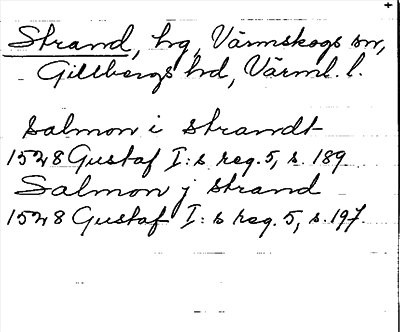 Strand, hg, Värmskogs sn,
Gillbergs hd, Värml. l.
Salmon i strandt
1528 Gustaf I:s reg. 5, s. 189
Salmon j strand
1528 Gustaf I:s reg. 5, s. 197.